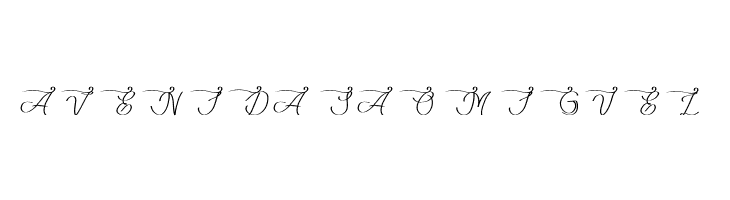 AVENIDA SAO MIGVEL